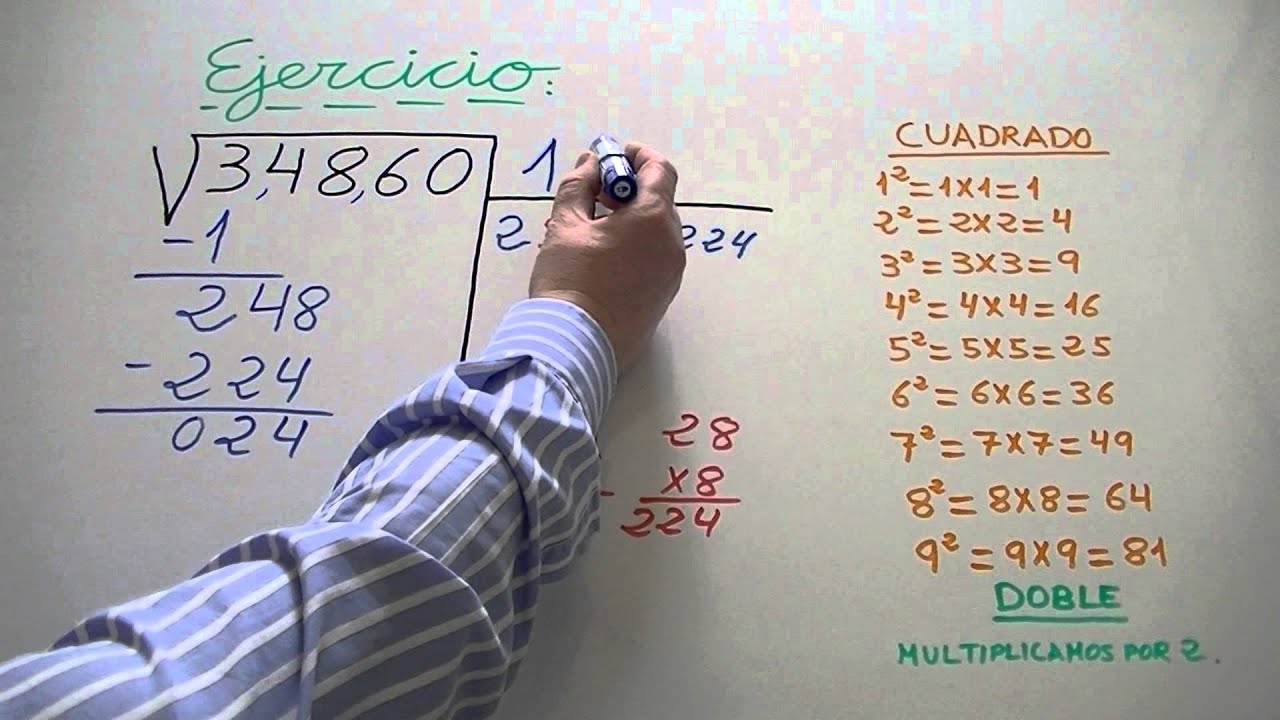 Ejercicio:
√3,48,60 1
-1
2 224
248
-224
024
28
x8
224
CUADRADO
1²=1x1=1
2²=2x2=4
3²=3x3=9
4²=4x4=16
5²=5x5=25
6²=6x6=36
7²=7x7=49
8²=8x8=64
9²=9x9=81
DOBLE
MULTIPLICAMOS POR 2.